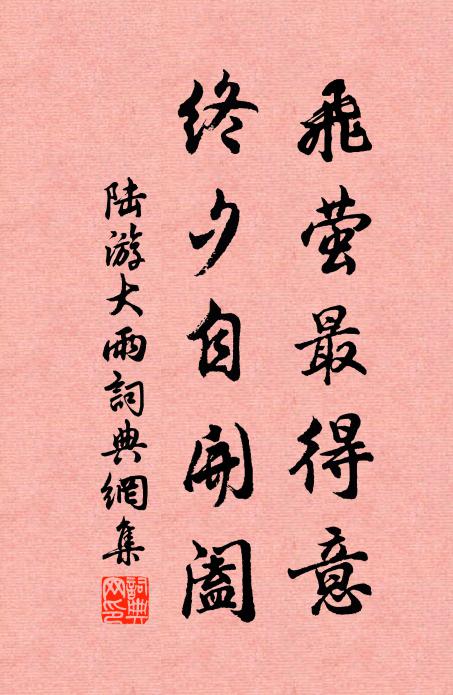 飛萤最得意
終夕自開阖
陸游大雨詞典網集
詞典网印